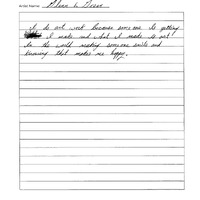 Artist Name:
I do art work because some one is getting
I made and what I made is out
in the world making someone smile and
knowing that makes me happy.